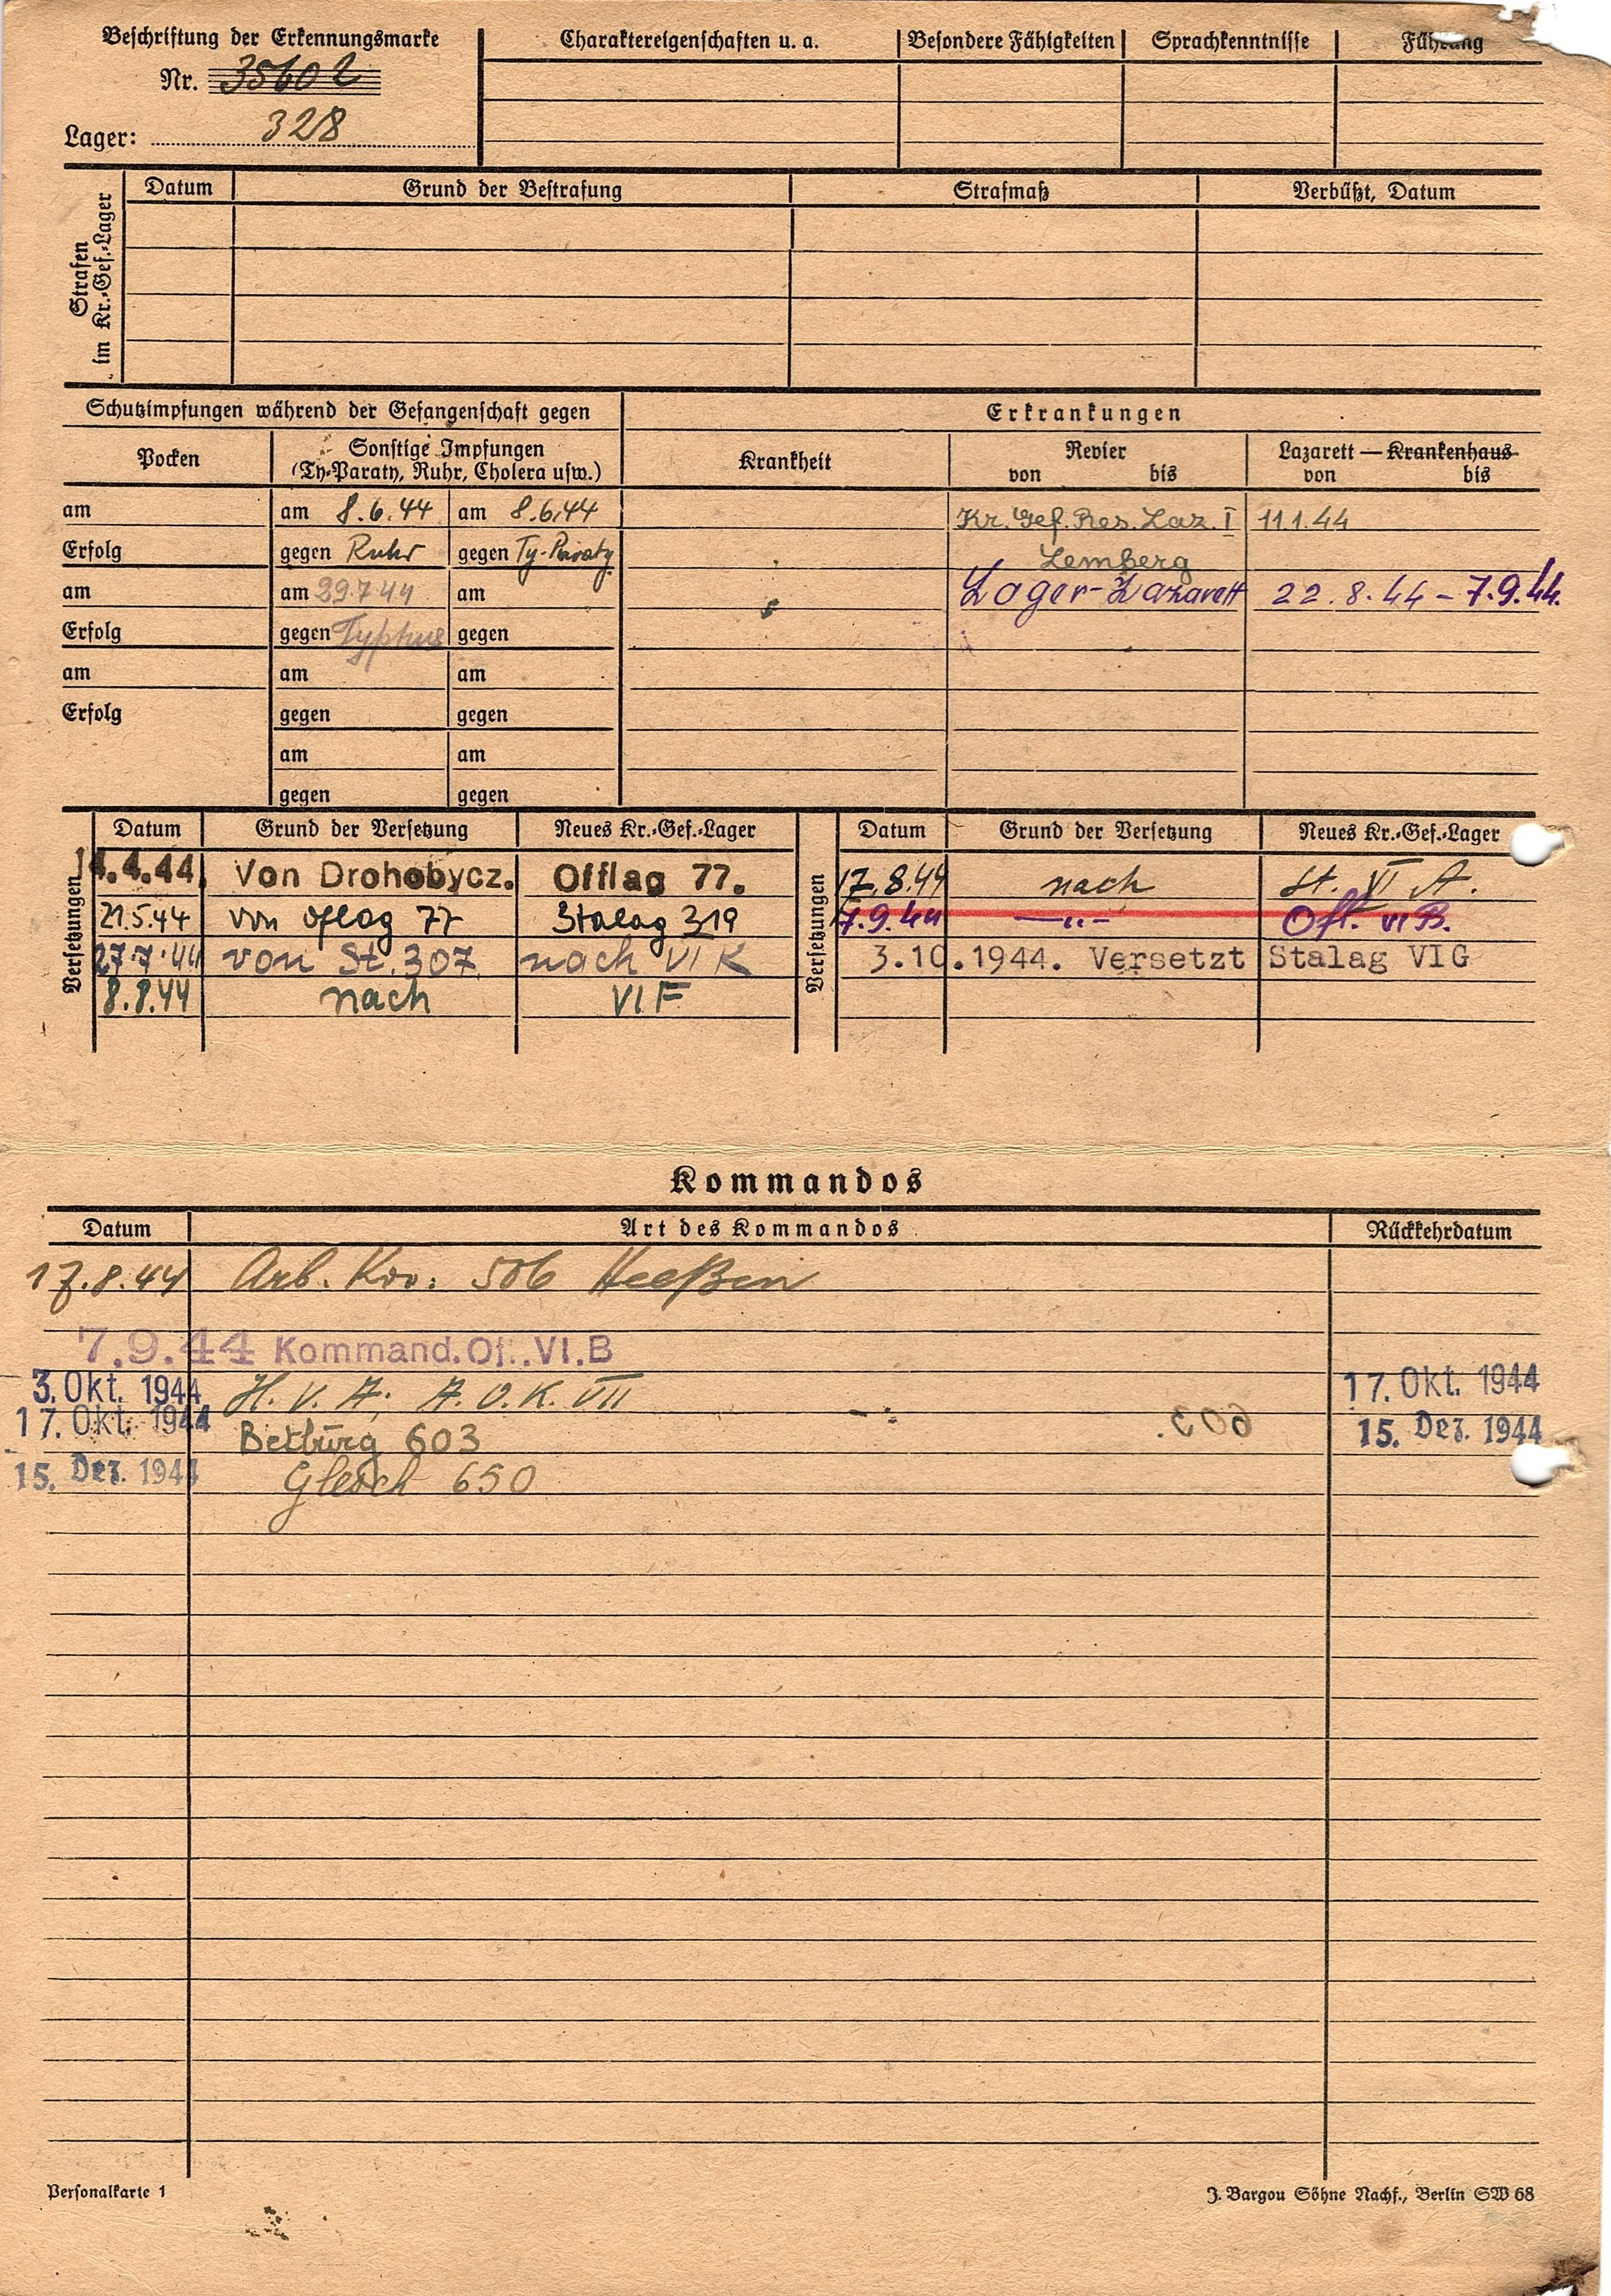 Beschriftung der Erkennungsmarke
Nr. 35602
Lager: 328
Charaktereigenschaften u. a. Besondere Fähigkeiten Sprachkenntnisse Führung
Strafen im Kr.-Gef.-Lager
Datum Grund der Bestrafung Strafmaß Verbüßt, Datum
Schutzimpfungen während der Gefangenschaft gegen
Erkrankungen
Pocken
Sonstige Impfungen
(Ty-Paraty, Ruhr, Cholera usw.)
Krankheit
Revier
von bis
Lazarett — Krankenhaus
von bis
am am 8.6.44 am 8.6.44 Kr. Gef. Res. Laz. I 11.1.44
Erfolg gegen Ruhr gegen Ty-Paraty Lemberg
am am 29.7.44 am Lager-Lazarett 22.8.44 - 7.9.44.
Erfolg gegen Typhus gegen
am am am
Erfolg gegen gegen
am am
gegen gegen
Versetzungen
Datum Grund der Versetzung Neues Kr.-Gef.-Lager
14.4.44. Von Drohobycz. Offlag 77.
21.5.44 von Oflag 77 Stalag 319
27.7.44 von St. 307 nach VI K
8.8.44 nach VI F
Versetzungen
Datum Grund der Versetzung Neues Kr.-Gef.-Lager
17.8.44 nach St. VI A.
7.9.44 —„— Ofl. VI B.
3.10.1944. Versetzt Stalag VI G
Kommandos
Datum Art des Kommandos Rückkehrdatum
17.8.44 Arb. Kdo: 506 Heeßen
7.9.44 Kommand. Of. VI. B
3. Okt. 1944 H. V. A. A. O. K. VII 17. Okt. 1944
17. Okt. 1944 Betburg 603 603. 15. Dez. 1944
15. Dez. 1944 650
Personalkarte 1
J. Bargou Söhne Nachf., Berlin SW 68